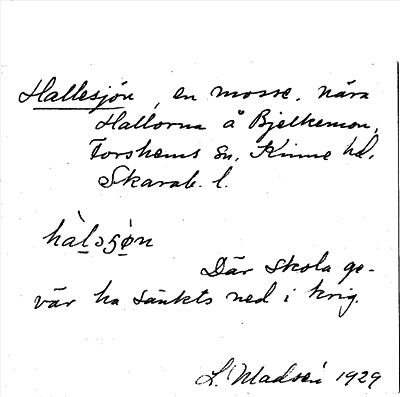 Hallesjön, en mosse, nära
Hallorna å Bjelkemon,
Forshems sn, Kinne hd,
Skarab. l.
Där skola ge-
vär ha sänkts ned i krig.
L. Madsén 1929